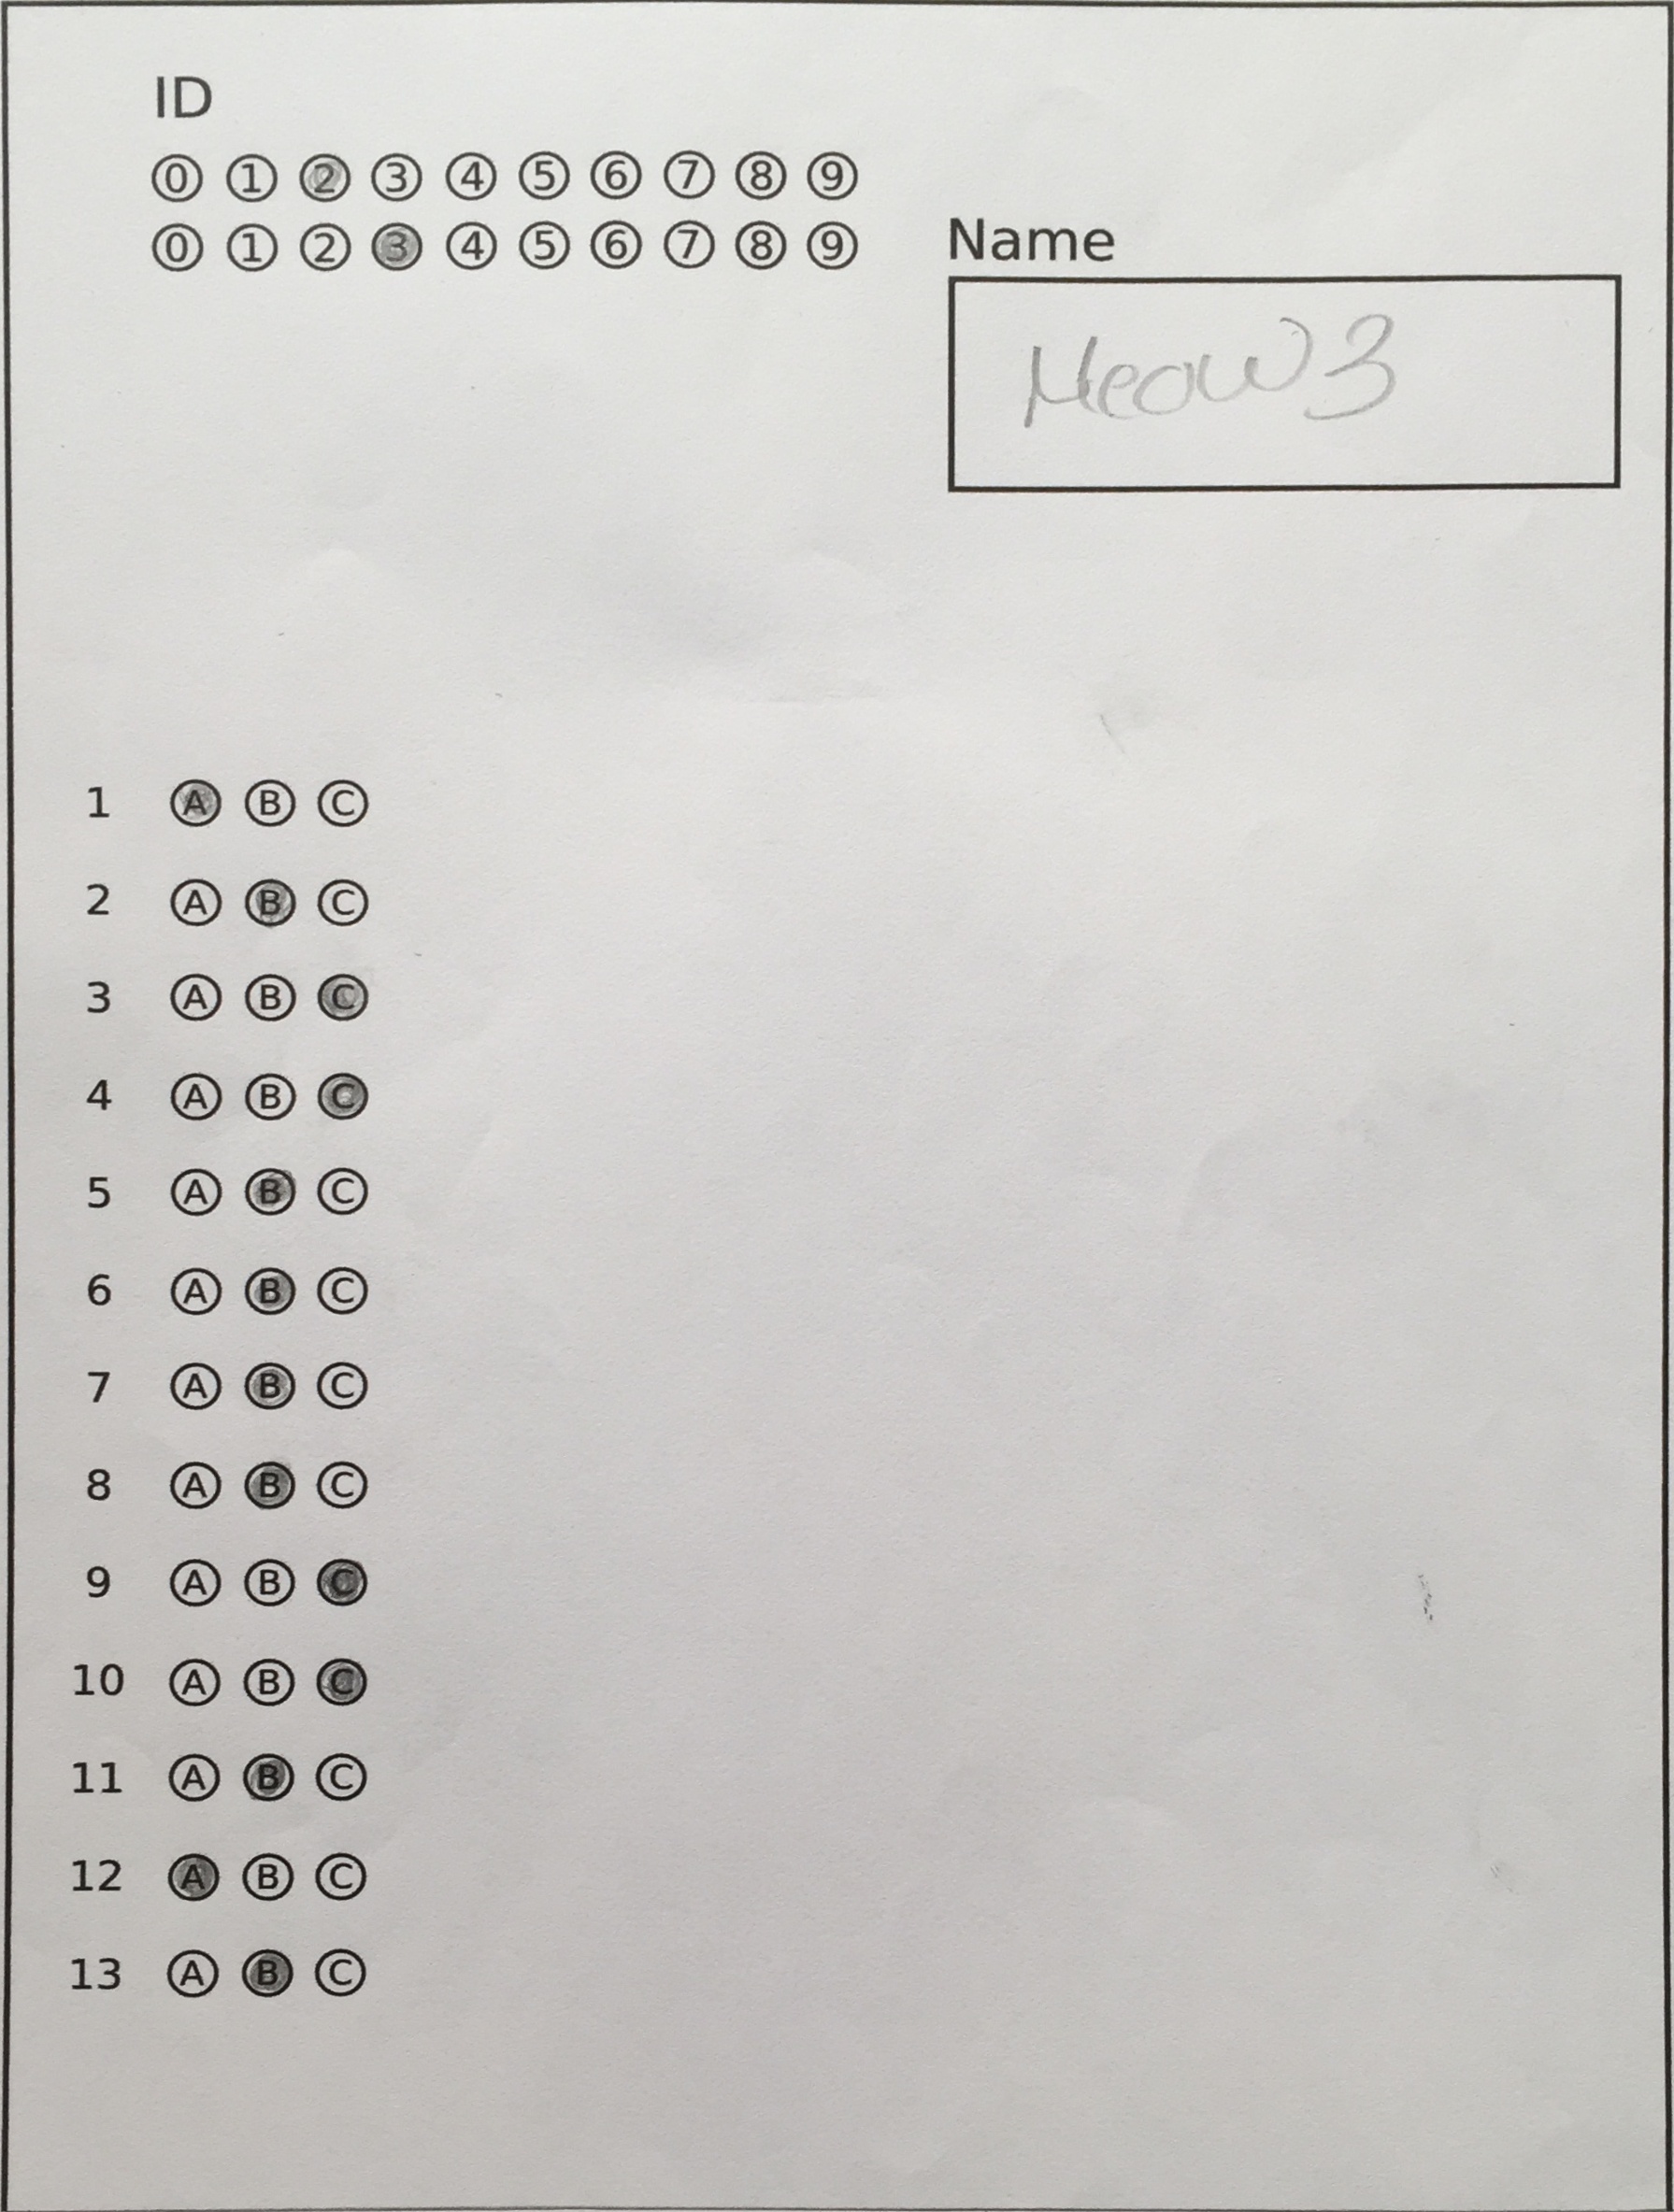 ID
0 1 2 3 4 5 6 7 8 9
0 1 2 3 4 5 6 7 8 9
Name
Meow3
1 A B C
2 A B C
3 A B C
4 A B C
5 A B C
6 A B C
7 A B C
8 A B C
9 A B C
10 A B C
11 A B C
12 A B C
13 A B C